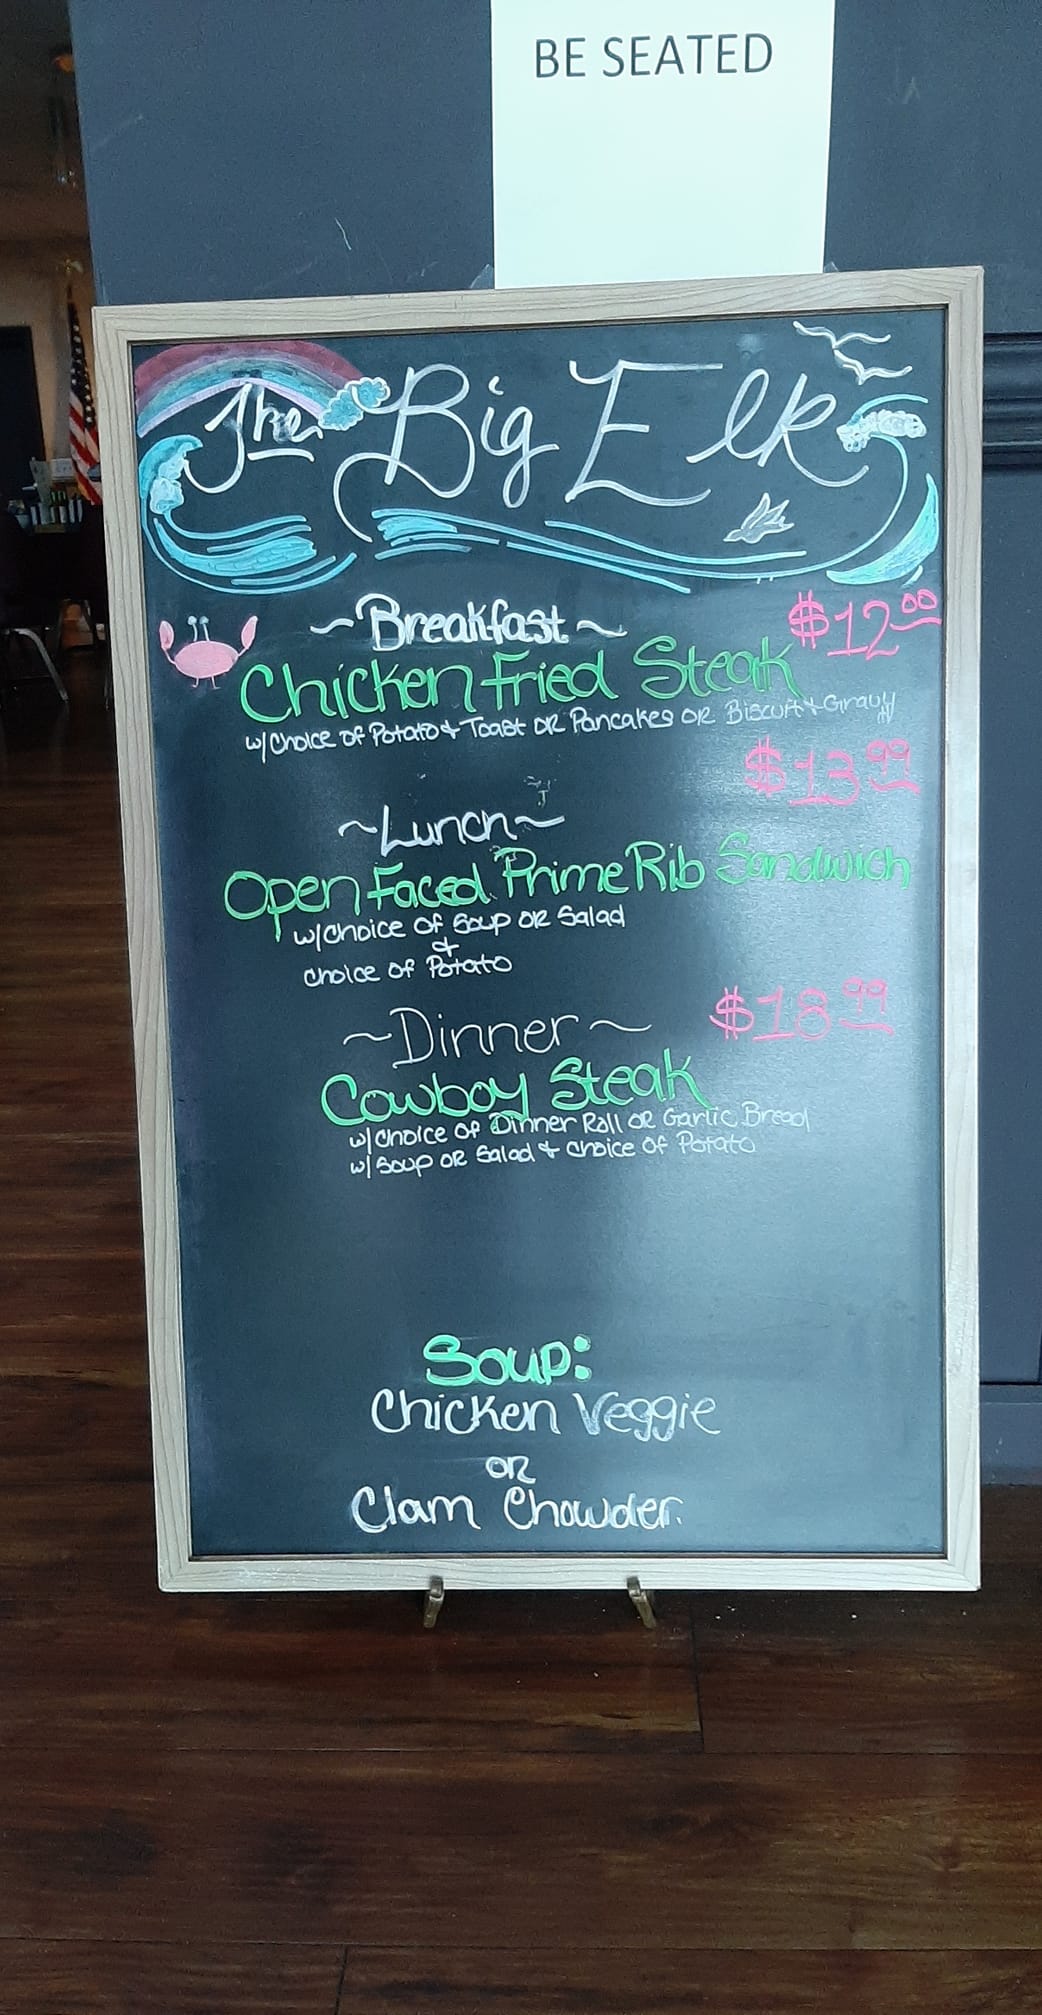 BE SEATED
The Big Elk
~Breakfast~ $12.00
Chicken Fried Steak
w/choice of Potato & Toast or Pancakes or Biscuit & Gravy
$13.99
~Lunch~
Open Faced Prime Rib Sandwich
w/choice of Soup or Salad
&
choice of Potato
~Dinner~ $18.99
Cowboy Steak
w/choice of Dinner Roll or Garlic Bread
w/ Soup or Salad & choice of Potato
Soup:
Chicken Veggie
or
Clam Chowder.